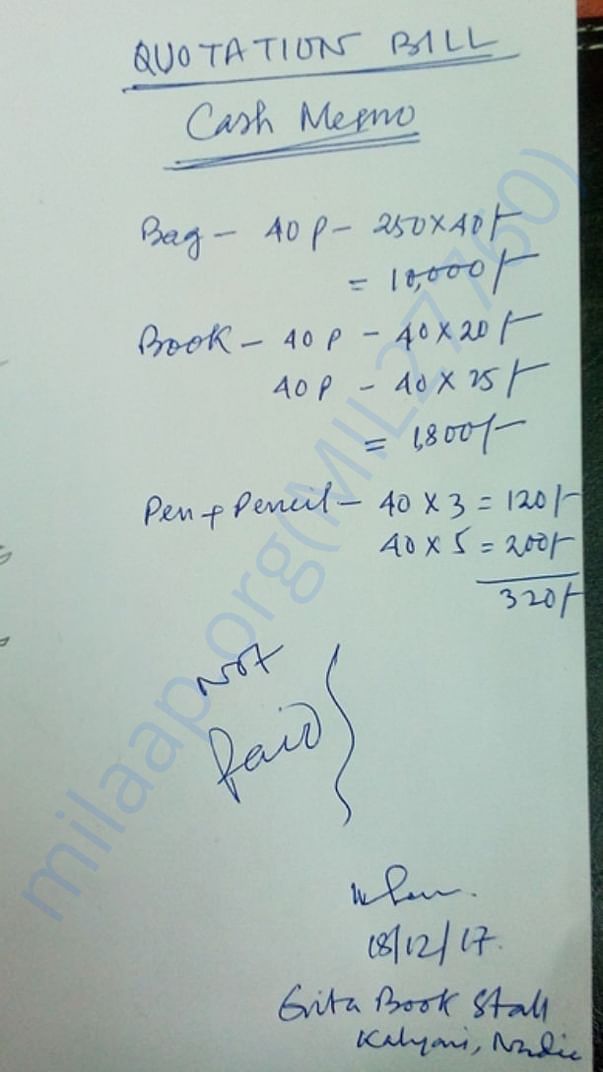 QUOTATION BILL
Cash Memo
Bag - 40 P - 250×40/-
= 10,000/-
Book - 40 P - 40×20/-
40 P - 40×25/-
= 1,800/-
Pen + Pencil - 40 × 3 = 120/-
40 × 5 = 200/-
320/-
Not
Paid
18/12/17.
Gita Book Stall
Kalyani, Nadia
milaap.org(MIL27760)